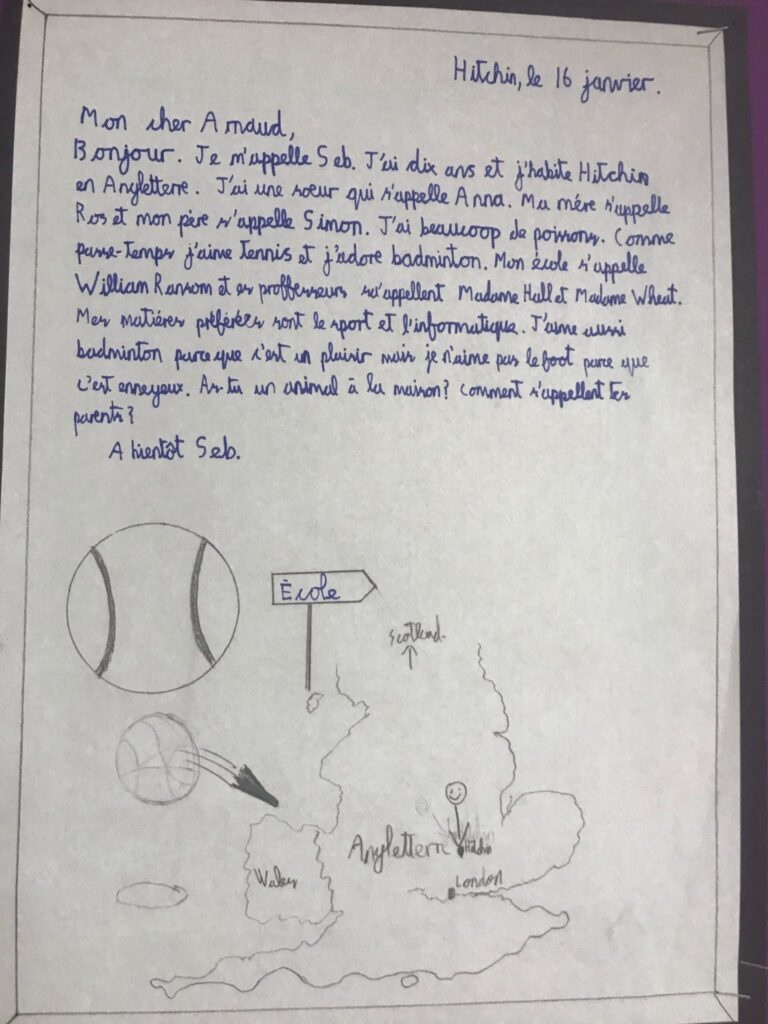 Hitchin, le 16 janvier.
Mon cher Arnaud,
Bonjour. Je m'appelle Seb. J'ai dix ans et j'habite Hitchin
en Angletterre. J'ai une sœur qui s'appelle Anna. Ma mére s'appelle
Ros et mon père s'appelle Simon. J'ai beaucoop de poissons. Comme
passe-temps j'aime tennis et j'adore badminton. Mon école s'appelle
William Ransom et es proffesseurs su'appellent Madame Hall et Madame Wheat.
Mes matiéres préférées sont le sport et l'informatique. J'aime aussi
badminton parce que c'est un plaisir mais je n'aime pas le foot parce que
c'est enneyeux. As-tu un animal à la maison? Comment s'appellent tes
parents?
A bientôt Seb.
École
Scotland
Angletterre
Hitchin
Wales
London